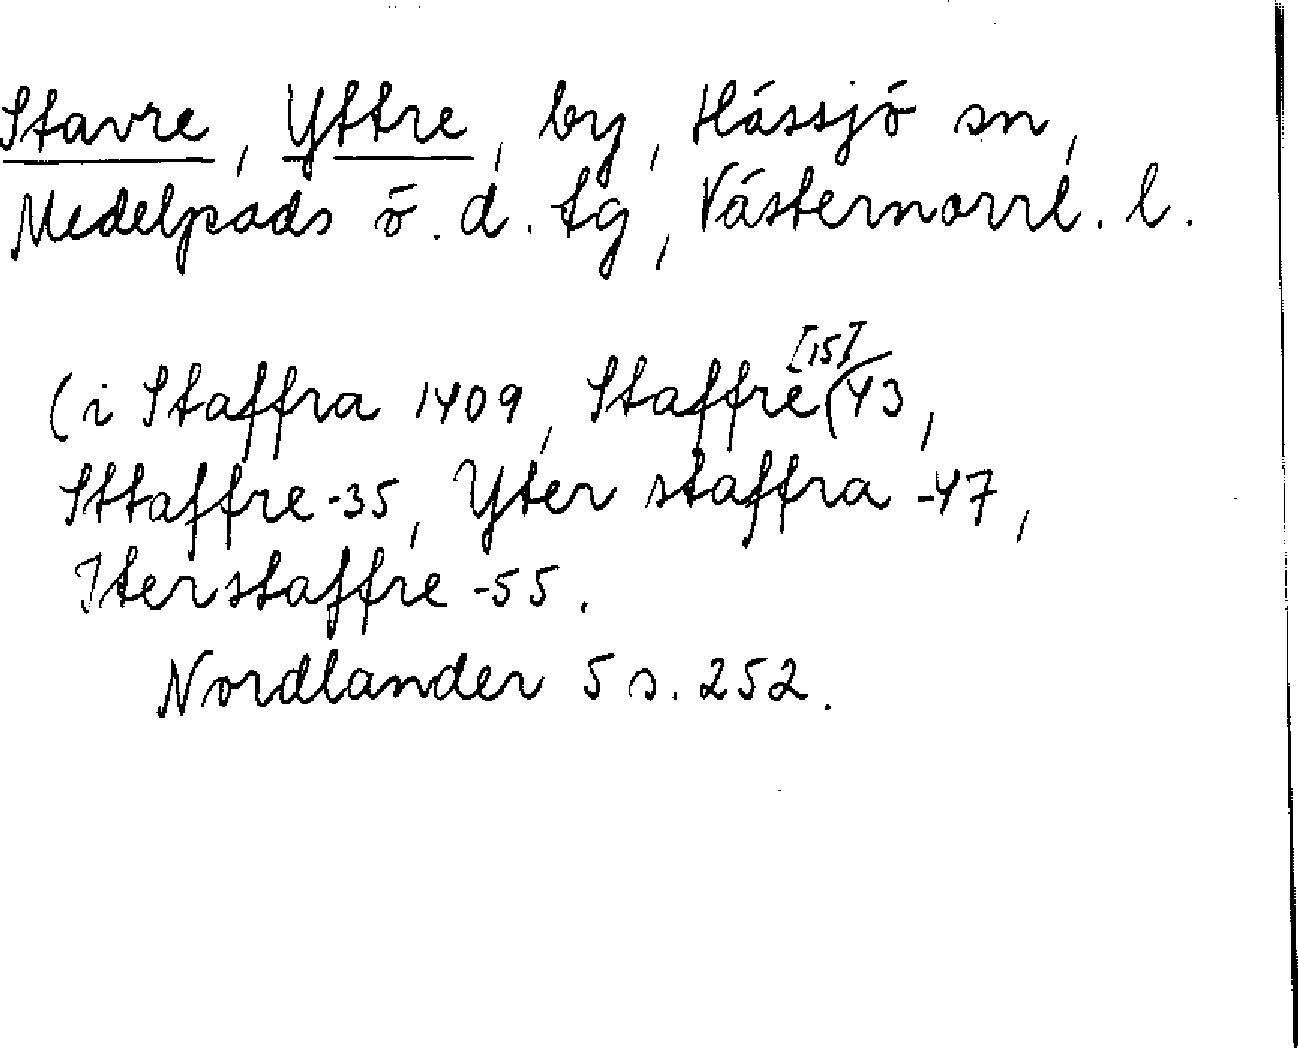 Stavre, Yttre, by, Hässjö sn,
Medelpads ö. d. tg, Västernorrl. l.
(i Staffra 1409, Staffre [15]43,
Sttaffre -35, Yter staffra -47,
Iterstaffre -55.
Nordlander 5 s. 252.